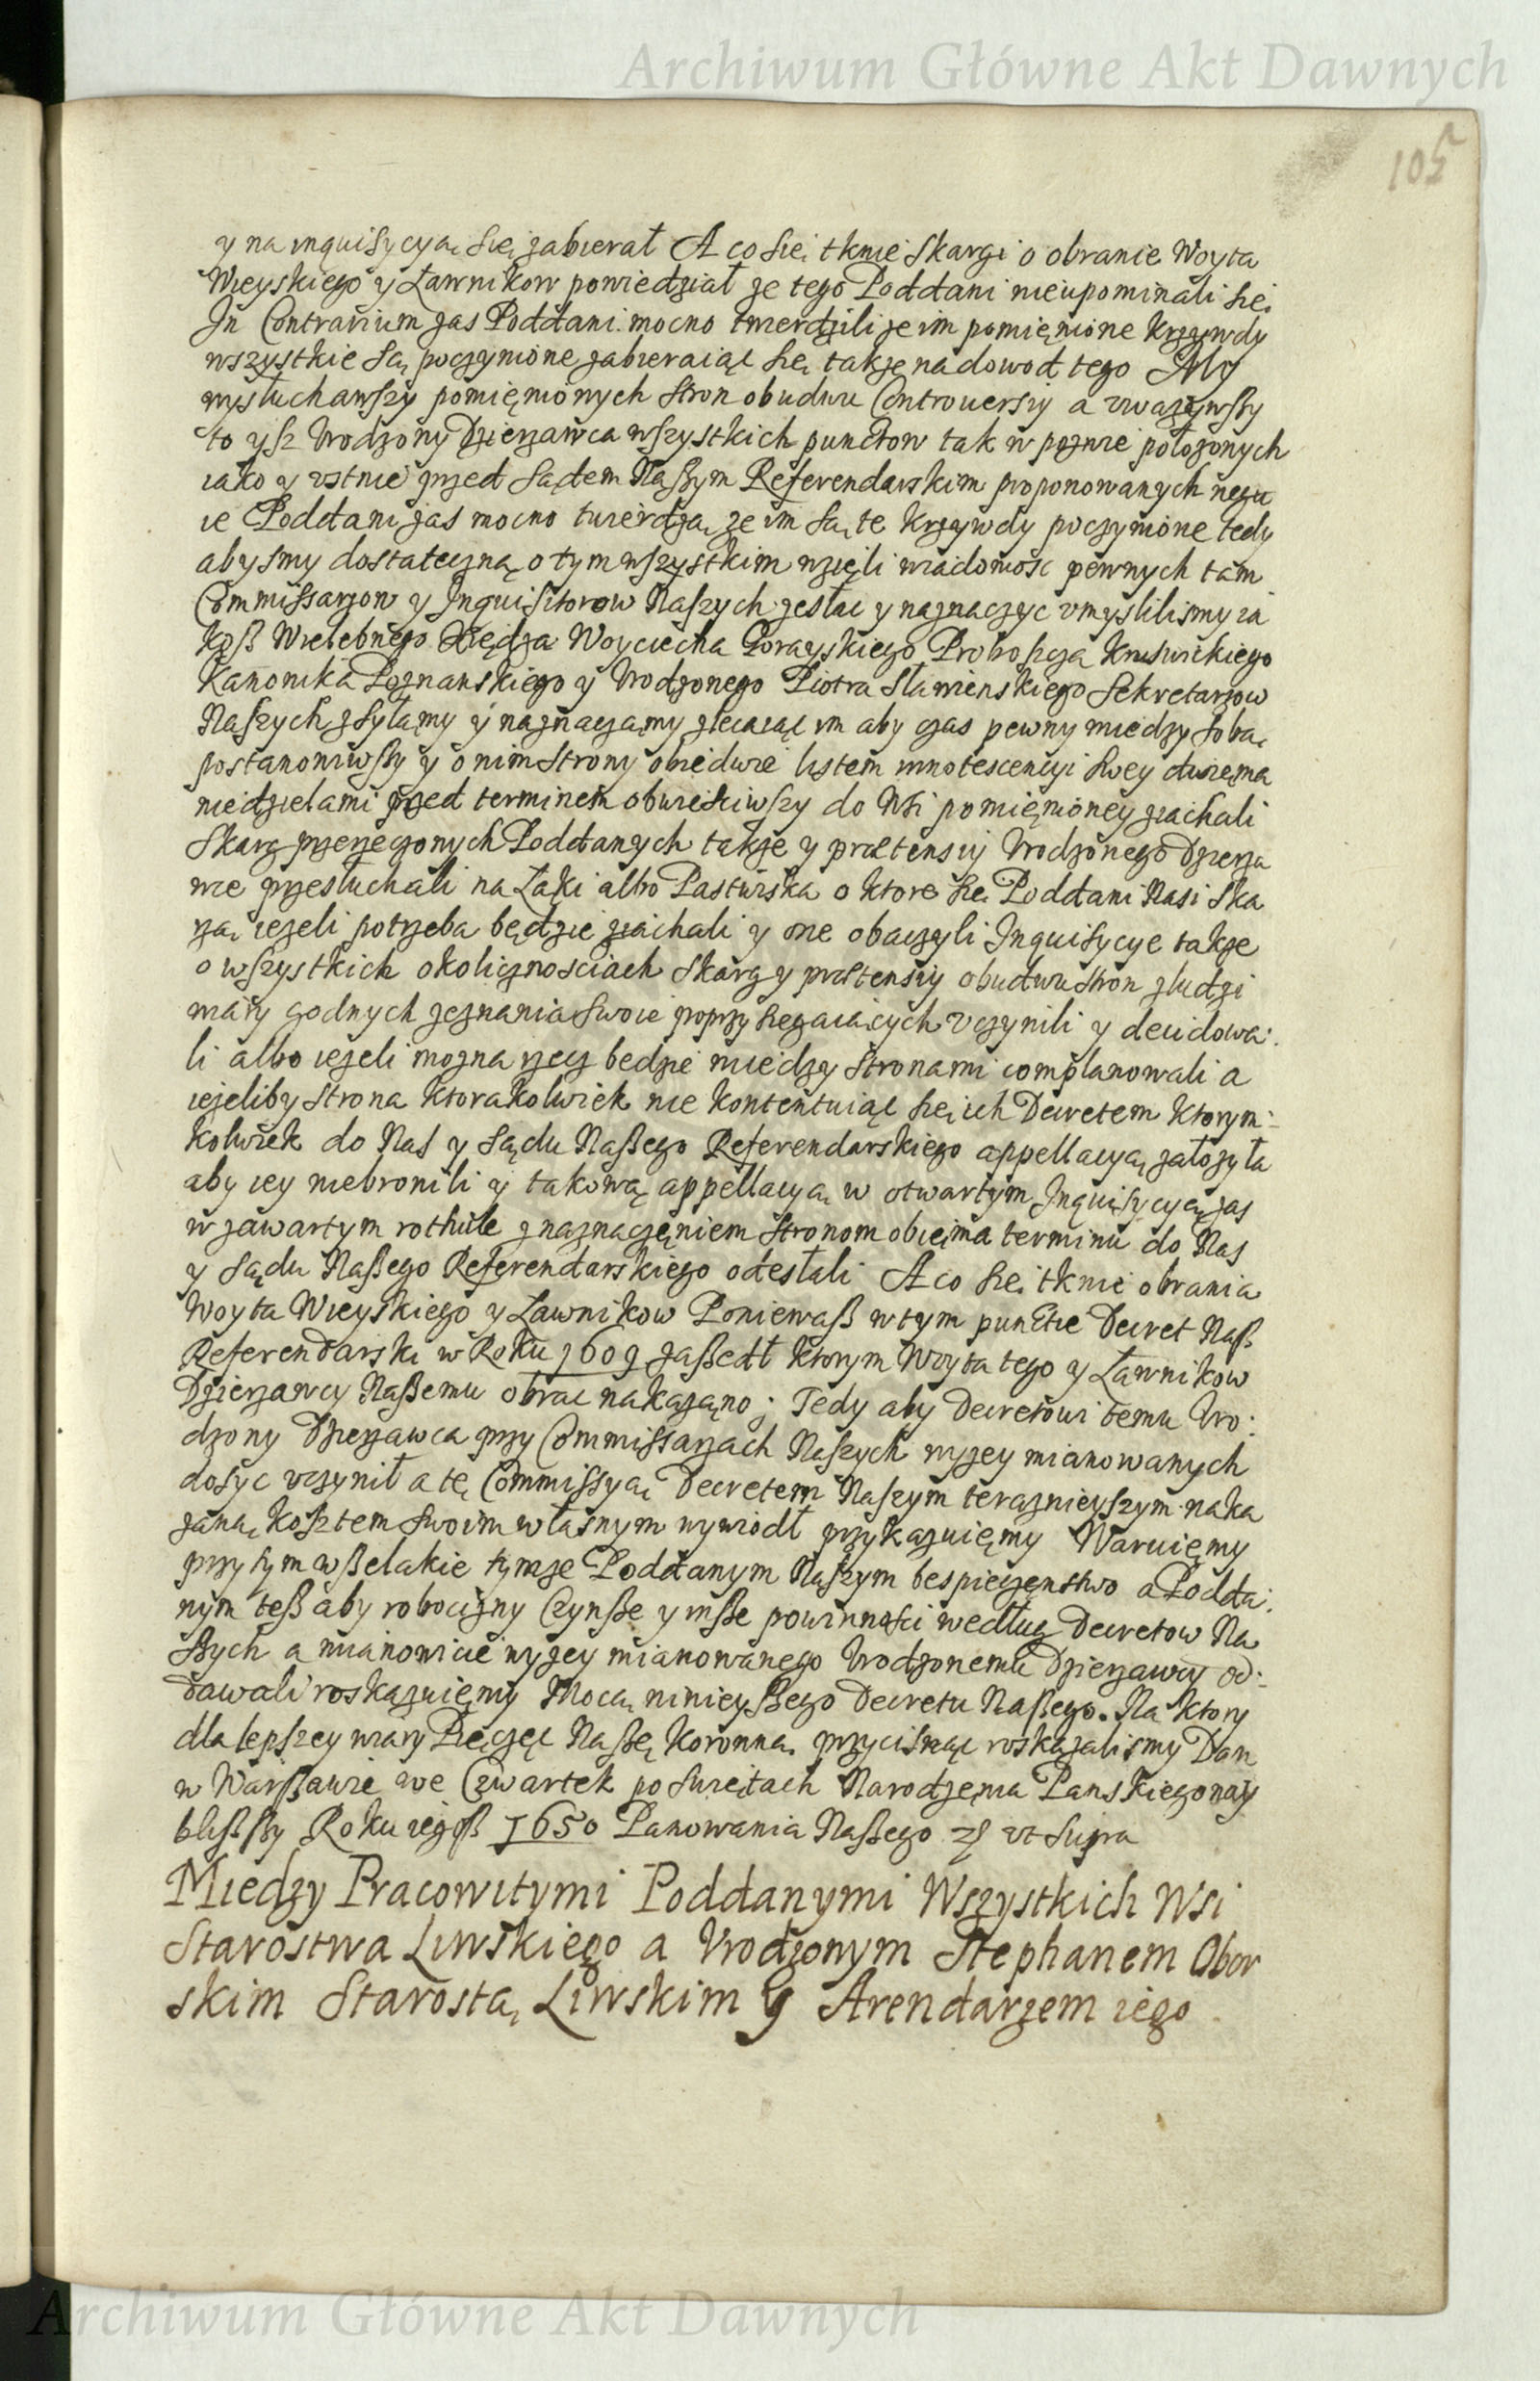 Archiwum Główne Akt Dawnych
105
y na inquisycyą się zabierał A co się tknie skargi o obranie Woyta
Wieyskiego y Ławnikow powiedział ze tego Poddani nieupominali się
In Contrarium zas Poddani mocno twierdzili ze im pomięnione krzywdy
wszystkie są poczynione zabieraiąc się takze na dowod tego My
wysłuchawszy pomięnionych stron obudwu Controuersiy a vwazywszy
to ysz Vrodzony Dzierzawca wszystkich punctow tak w pozwie połozonych
iako y vstnie przed Sądem Naszym Referendarskim proponowanych negu
ie Poddani zas mocno twierdzą ze im są te krzywdy poczynione tedy
abysmy dostateczną o tym wszystkim wzięli wiadomosc pewnych tam
Commissarzow y Inquisitorow Naszych zesłac y naznaczyc vmyslilismy ia
kosz Wielebnego Xiędza Woyciecha Gorayskiego Proboszcza Kruswickiego
Kanonika Poznanskiego y Vrodzonego Piotra Slawienskiego Sekretarzow
Naszych zsyłamy y naznaczamy zlecaiąc im aby czas pewny miedzy sobą
postanowiwszy y o nim strony obiedwie listem innotescencyi swey dwiema
niedzielami przed terminem obwiesciwszy do Wsi pomięnioney ziachali
Skarg przerzeczonych Poddanych takze y praetensiy Vrodzonego Dzierza
wce przesłuchali na Łąki albo Pastwiska o ktore się Poddani Nasi ska
rzą iezeli potrzeba będzie ziachali y one obaczyli Inquisycye takze
o wszystkich okolicznosciach skarg y praetensiy obudwu stron z ludzi
wiary godnych zeznania swoie poprzysięgaiących vczynili y decidowa:
li albo iezeli mozna rzecz bedzie miedzy stronami complanowali a
iezeliby strona ktorakolwiek nie kontentuiąc się ich Decretem ktorym:
kolwiek do Nas y Sądu Naszego Referendarskiego appellacyą załozyła
aby iey niebronili y takową appellacyą w otwartym Inquisycyą zas
w zawartym rothule z naznaczęniem stronom obiema terminu do Nas
y Sądu Naszego Referendarskiego odesłali A co się tknie obrania
Woyta Wieyskiego y Ławnikow Poniewasz w tym punctie Decret Nasz
Referendarski w Roku 1609 zaszedł ktorym Woyta tego y Ławnikow
Dzierzawcy Naszemu obrac nakazano; Tedy aby Decretowi temu Vro:
dzony Dzierzawca przy Commissarzach Naszych wyzey mianowanych
dosyc vczynił a tę Commissyą Decretem Naszym terazniejszym naka
zaną kosztem swoim własnym wywiodł przykazuięmy Waruięmy
przy tym wszelakie tymze Poddanym Naszym bespieczęnstwo a Podda:
nym tesz aby robocizny Czynsze y insze powinnosci według Decretow Na
szych a mianowicie wyzey mianowanego Vrodzonemu Dzierzawcy od:
dawali roskazuięmy Mocą ninieyszego Decretu Naszego. Na ktory
dla lepszey wiary Pięczęc Naszę Koronną przycisnąc roskazalismy Dan
w Warszawie we Czwartek po Swiętach Narodzenia Panskiego nay
bliszszy Roku iegosz 1650 Panowania Naszego vt supra
Miedzy Pracowitymi Poddanymi Wszystkich Wsi
Starostwa Liwskiego a Vrodzonym Stephanem Obor
skim Starostą Liwskim y Arendarzem iego
Archiwum Główne Akt Dawnych